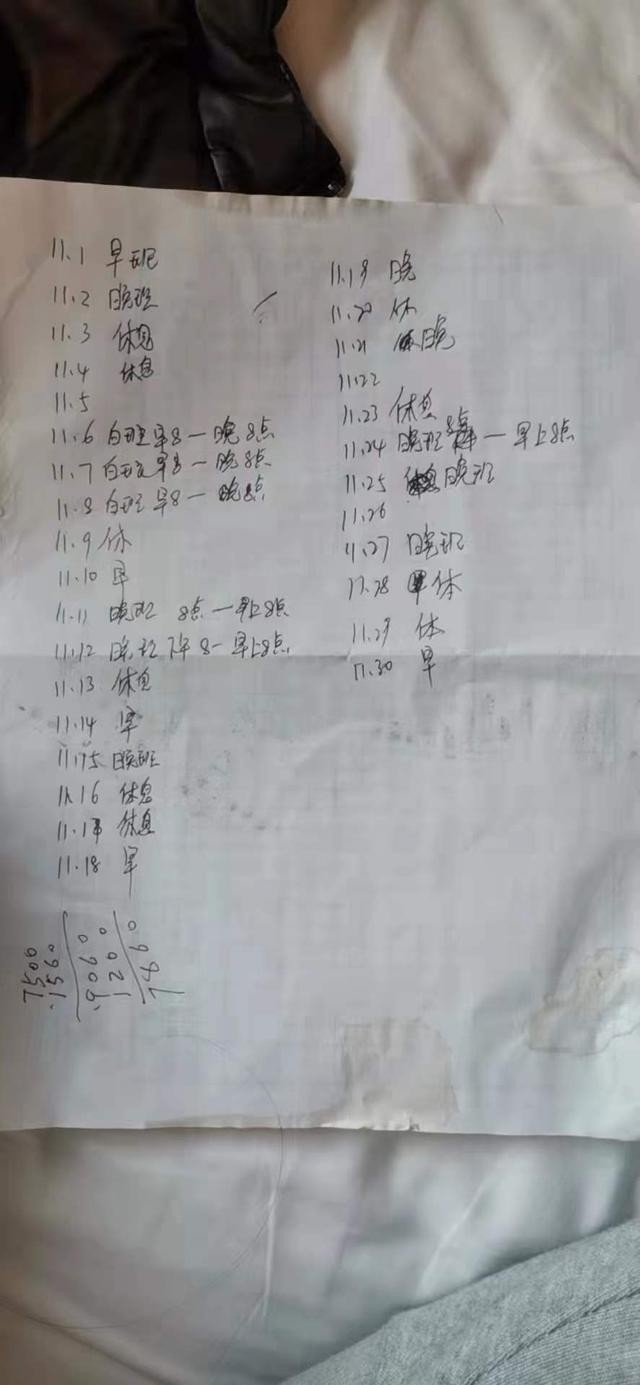 11.1 早班
11.2 晚班
11.3 休息
11.4 休息
11.5
11.6 白班早8一晚8点
11.7 白班早8一晚8点
11.8 白班早8一晚8点
11.9 休
11.10 早
11.11 晚班 8点一早上8点
11.12 晚班 下午8-早上8点
11.13 休息
11.14 早
11.15 晚班
11.16 休息
11.17 休息
11.18 早
11.19 晚
11.20 休
11.21 晚
11.22
11.23 休息
11.24 晚班8点一早上8点
11.25 晚班
11.26
11.27 晚班
11.28 休
11.29 休
11.30 早
7500
1560